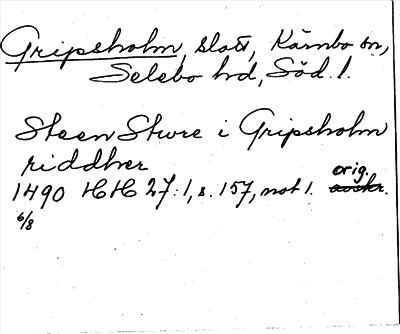 Gripsholm, slott, Kärnbo sn,
Selebo hd, Söd. l.
Steen Sture i Gripsholm
riddher
orig.
1490 HH 27:1, s. 157, not 1. avskr.
6/8